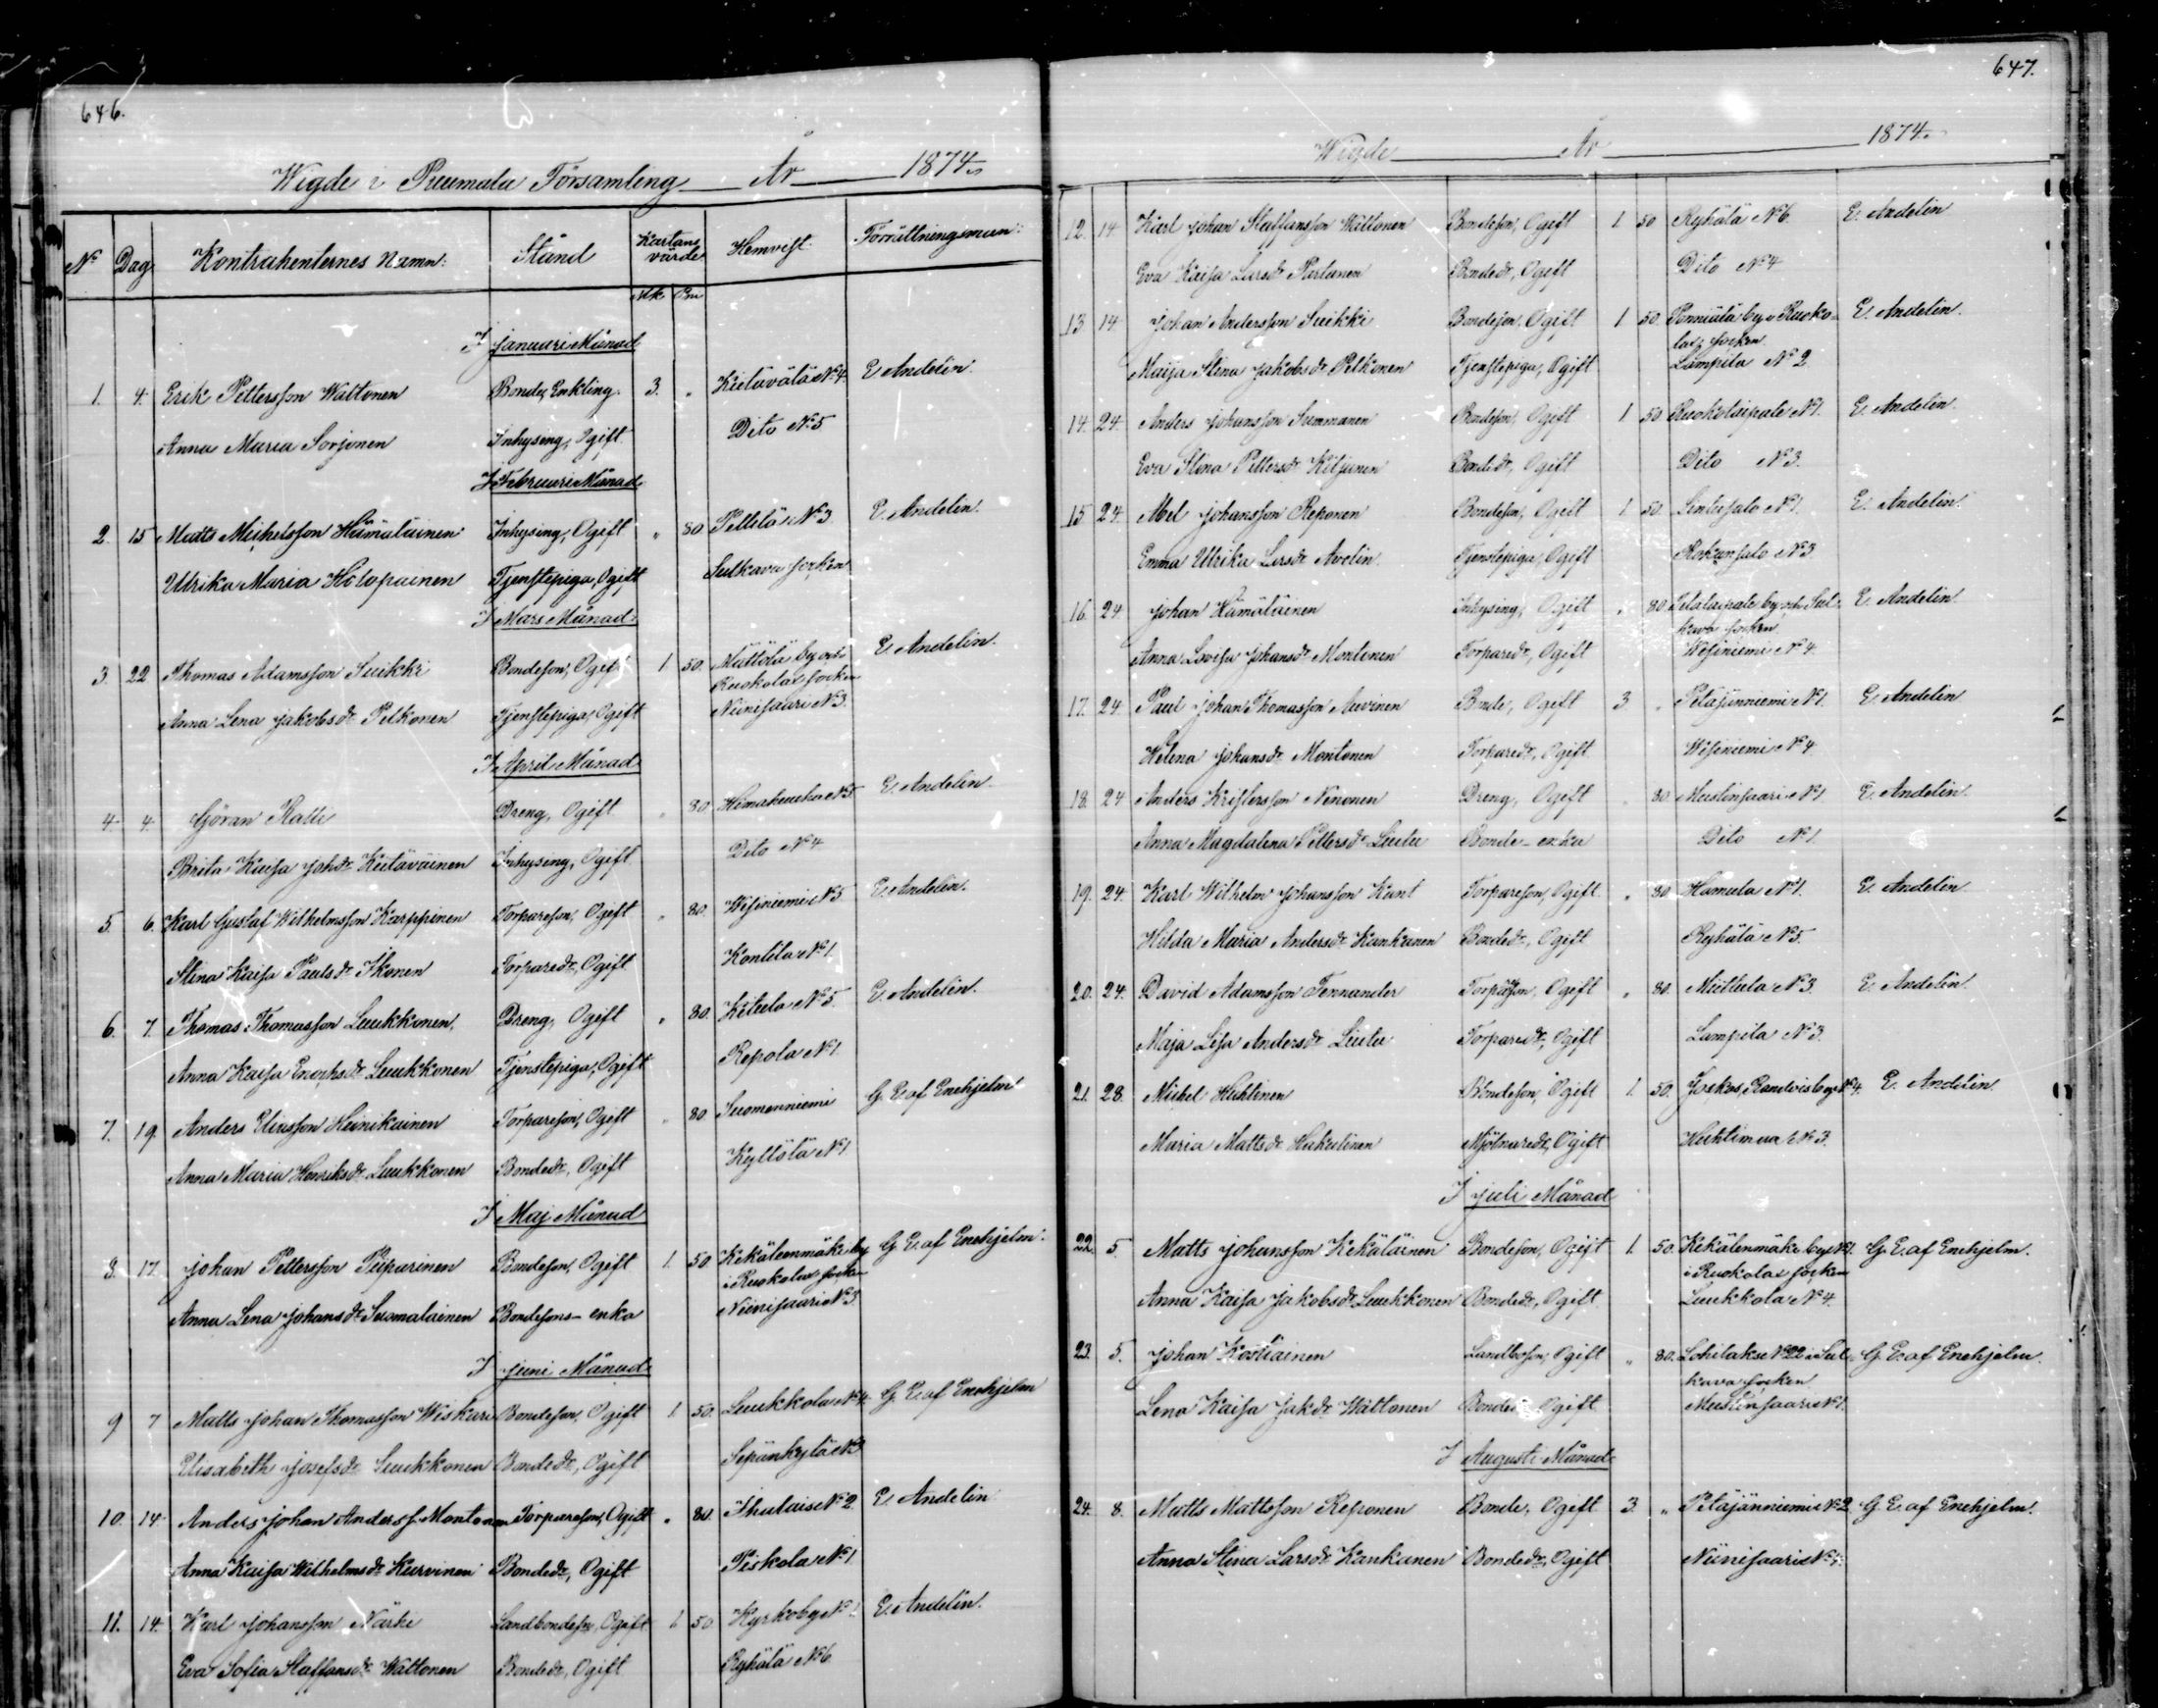 646.
Wigde i Puumala Församling År 1874.
No Dag Kontrahenternes Namn: Stånd Kartans värde Hemvist Förrättningsman:
Mk Pni
I Januari Månad
1. 4. Erik Pettersson Wättonen Bonde, Enkling. 3. " Kietävälä No 4. E. Andelin.
Anna Maria Sorjonen Inhysing, Ogift Dito No 5
I Februari Månad
2. 15 Matts Michelsson Hämäläinen Inhysing, Ogift " 80 Pellelä No 3 E. Andelin.
Ulrika Maria Hötopainen Tjenstepiga, Ogift Sulkava socken
I Mars Månad
3. 22 Thomas Adamsson Suikki Bondeson, Ogift 1 50. Mättölä by och E. Andelin.
Ruokolax socken
Anna Lena Jakobsdr Pelkonen Tjenstepiga, Ogift Niinisaari No 3.
I April Månad
4. 4. Göran Ratti Dreng, Ogift " 80. Himaheuha No 5 E. Andelin.
Brita Kaisa Johdr Kietäväinen Inhysing, Ogift Dito No 4
5. 6. Karl Gustaf Wilhelmsson Karppinen Torpareson, Ogift " 80. Wesiniemi No 5 E. Andelin.
Stina Kaisa Paulsdr Ikonen Torparedr, Ogift Kontila No 1.
6. 7. Thomas Thomasson Luukkonen. Dreng, Ogift " 80. Kitula No 5. E. Andelin.
Anna Kaisa Enochsdr Luukkonen Tjenstepiga, Ogift Repola No 1.
7. 19. Anders Eliasson Heinikainen Torpareson, Ogift " 80 Suomenniemi G. E. af Enehjelm
Anna Maria Henriksdr Luukkonen Bondedr, Ogift Kyllölä No 1
I Maj Månad
8. 17. Johan Pettersson Piiparinen Bondeson, Ogift 1. 50. Kekälenmäki by G. E. af Enehjelm.
i Ruokolax socken
Anna Lena Johansdr Suomalainen Bondesons-enka Niinisaari No 3.
I Juni Månad
9 7 Matts Johan Thomasson Wiskari Bondeson, Ogift 1. 50. Luukkola No 4. G. E. af Enehjelm
Elisabeth Josefsdr Luukkonen Bondedr, Ogift Sepänkylä No 3
10. 14. Anders Johan Anderss. Montonen Torpareson, Ogift " 80. Ihulais No 2. E. Andelin
Anna Kaisa Wilhelmsdr Kurvinen Bondedr, Ogift Piskola No 1
11. 14. Karl Johansson Närhi Landbondeson, Ogift 1 50. Kyrkoby No 1. E. Andelin.
Eva Sofia Staffansdr Wättonen Bondedr, Ogift Ryhälä No 6
647.
Wigde År 1874.
12. 14. Karl Johan Staffansson Wättonen Bondeson, Ogift 1 50 Ryhälä No 6. E. Andelin
Eva Kaisa Larsdr Partanen Bondedr, Ogift Dito No 4
13. 14. Johan Andersson Suikki Bondeson, Ogift 1 50. by i Ruoko- E. Andelin.
lax socken
Maija Stina Jakobsdr Pelkonen Tjenstepiga, Ogift Lampila No 2
14. 24. Anders Johansson Summanen Bondeson, Ogift 1 50. Ruokotaipale No 1. E. Andelin.
Eva Stina Pettersdr Kiljunen Bondedr, Ogift Dito No 3.
15. 24. Abel Johansson Reponen Bondeson, Ogift 1 50. Lintusalo No 1. E. Andelin.
Emma Ulrika Larsdr Avelin. Tjenstepiga, Ogift Rokansalo No 3
16. 24. Johan Hämäläinen Inhysing, Ogift " 80. Telataipale by och Sul- E. Andelin.
kava socken
Anna Lovisa Johansdr Montonen Torparedr, Ogift Wesiniemi No 4.
17. 24. Paul Johan Thomasson Auvinen Bonde, Ogift 3. " Petäjänniemi No 1. E. Andelin
Helena Johansdr Montonen Torparedr, Ogift Wesiniemi No 4
18. 24 Anders Kristersson Nenonen Dreng, Ogift " 80. Mustinsaari No 1 E. Andelin.
Anna Magdalena Pettersdr Liutu Bonde-enka Dito No 1.
19. 24. Karl Wilhelm Johansson Kant Torpareson, Ogift " 80. Hamula No 1. E. Andelin
Hilda Maria Andersdr Kankanen Bondedr, Ogift Ryhälä No 5.
20. 24. David Adamsson Tennander Torpareson, Ogift " 80. Miettula No 3. E. Andelin.
Maja Lisa Andersdr Liutu Torparedr, Ogift Lampila No 3.
21. 28. Mickel Huhtinen Bondeson, Ogift 1. 50. Jockas, Randvis by No 4. E. Andelin
Maria Mattsdr Hakulinen Mjölnaredr, Ogift Huhtimaa No 3.
I Juli Månad
22. 5. Matts Johansson Kekäläinen Bondeson, Ogift 1. 50. Kekälenmäki by No 1. G. E. af Enehjelm.
i Ruokolax socken
Anna Kaisa Jakobsdr Luukkonen Bondedr, Ogift Luukkola No 4.
23. 5. Johan Kostiainen Landboson, Ogift " 80. Lohilaks No 22 i Sul- G. E. af Enehjelm.
kava socken
Lena Kaisa Jakdr Wättonen Bondedr, Ogift Mustinsaari No 1.
I Augusti Månad
24. 8. Matts Mattsson Reponen Bonde, Ogift 3. " Petäjänniemi No 2. G. E. af Enehjelm.
Anna Stina Larsdr Kankanen Bondedr, Ogift Niinisaari No 4.